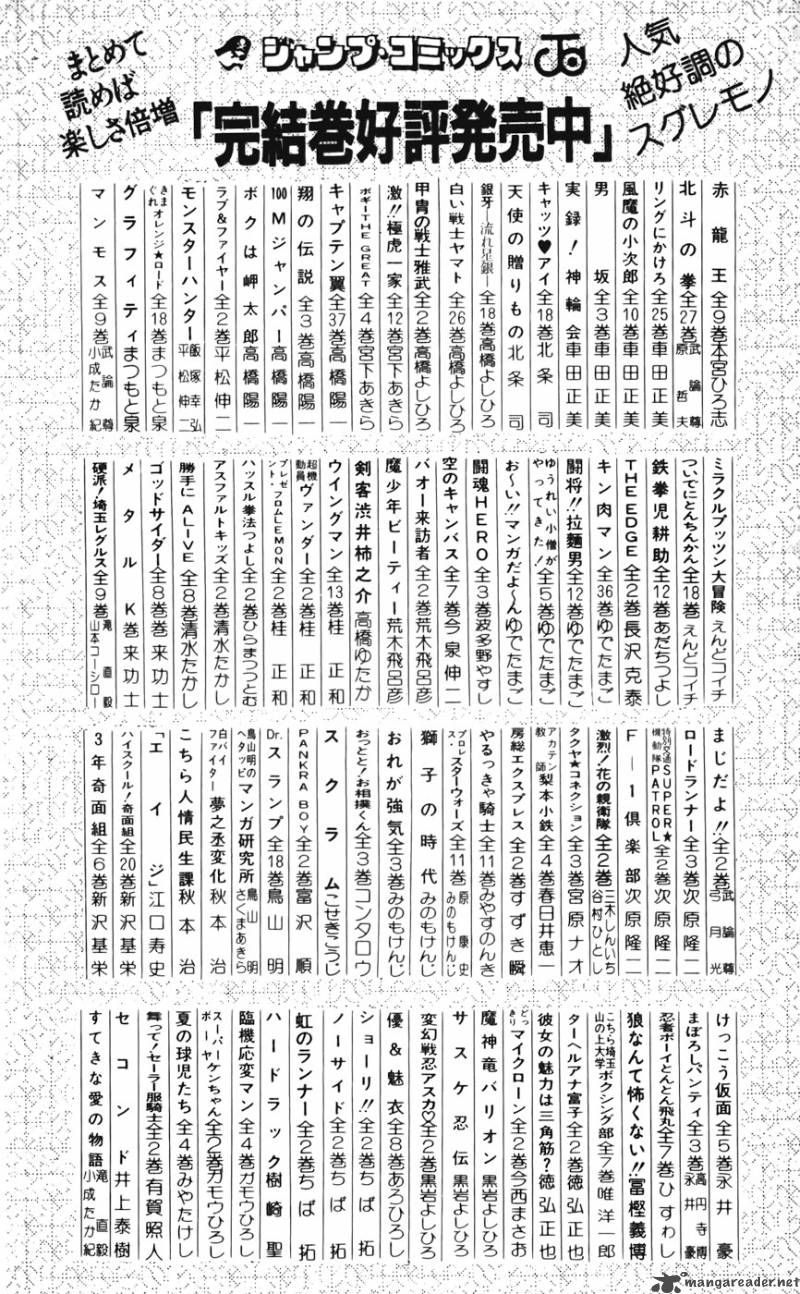 ジャンプ・コミックス
人気
絶好調の
スグレモノ
「完結巻好評発売中」
まとめて
読めば
楽しさ倍増
赤龍王 全9巻 本宮ひろ志
北斗の拳 全27巻 武論尊 原哲夫
リングにかけろ 全25巻 車田正美
風魔の小次郎 全10巻 車田正美
男坂 全3巻 車田正美
実録!神輪会 車田正美
キャッツ♥アイ 全18巻 北条司
天使の贈りもの 北条司
銀牙―流れ星銀― 全18巻 高橋よしひろ
白い戦士ヤマト 全26巻 高橋よしひろ
甲冑の戦士雅武 全2巻 高橋よしひろ
激!!極虎一家 全12巻 宮下あきら
ボギーTHE GREAT 全4巻 宮下あきら
キャプテン翼 全37巻 高橋陽一
翔の伝説 全3巻 高橋陽一
100Mジャンパー 高橋陽一
ボクは岬太郎 高橋陽一
ラブ&ファイヤー 全2巻 平松伸二
モンスターハンター 飯塚幸弘 平松伸二
きまぐれオレンジ★ロード 全18巻 まつもと泉
グラフィティ まつもと泉
マンモス 全9巻 武論尊 小成たか紀
ミラクルプッツン大冒険 えんどコイチ
ついでにとんちんかん 全18巻 えんどコイチ
鉄拳児耕助 全12巻 あだちつよし
THE EDGE 全2巻 長沢克泰
キン肉マン 全36巻 ゆでたまご
闘将!!拉麵男 全12巻 ゆでたまご
ゆうれい小僧がやってきた! 全5巻 ゆでたまご
お〜い!!マンガだよ〜ん ゆでたまご
闘魂HERO 全3巻 波多野やすし
空のキャンバス 全7巻 今泉伸二
バオー来訪者 全2巻 荒木飛呂彦
魔少年ビーティー 荒木飛呂彦
剣客渋井柿之介 高橋ゆたか
ウイングマン 全13巻 桂正和
超機動員ヴァンダー 全2巻 桂正和
プレゼント・フロムLEMON 全2巻 桂正和
ハッスル拳法つよし 全2巻 ひらまつつとむ
アスファルトキッズ 全2巻 清水たかし
勝手にALIVE 全8巻 清水たかし
ゴッドサイダー 全8巻 巻来功士
メタルK 巻来功士
硬派!埼玉レグルス 全9巻 滝直毅 山本コーシロー
まじだよ!! 全2巻 武論尊 弓月光
ロードランナー 全3巻 次原隆二
特別交通機動隊SUPER★PATROL 全2巻 次原隆二
F―1倶楽部 次原隆二
激烈!花の親衛隊 全2巻 三木しんいち 谷村ひとし
タクヤ★コネクション 全3巻 宮原ナオ
アカテン教師 梨本小鉄 全4巻 春日井恵一
房総エクスプレス 全2巻 すずき瞬
やるっきゃ騎士 全11巻 みやすのんき
プロレス・スターウォーズ 全11巻 原康史 みのもけんじ
獅子の時代 みのもけんじ
おれが強気 全3巻 みのもけんじ
おっとと!お相撲くん 全3巻 コンタロウ
スクラム こせきこうじ
PANKRA BOY 全2巻 富沢順
Dr.スランプ 全18巻 鳥山明
鳥山明のヘタッピマンガ研究所 鳥山明 さくまあきら
白バイファイター 夢之丞変化 秋本治
こちら人情民生課 秋本治
「エイジ」 江口寿史
ハイスクール!奇面組 全20巻 新沢基栄
3年奇面組 全6巻 新沢基栄
けっこう仮面 全5巻 永井豪
まぼろしパンティ 全3巻 高円寺博 永井豪
忍者ボーイとんとん飛丸 全7巻 ひすわし
狼なんて怖くない!! 冨樫義博
こちら埼玉山の上大学ボクシング部 全7巻 唯洋一郎
ターヘルアナ富子 全2巻 徳弘正也
彼女の魅力は三角筋? 徳弘正也
どっきりマイクローン 全2巻 今西まさお
魔神竜バリオン 黒岩よしひろ
サスケ忍伝 黒岩よしひろ
変幻戦忍アスカ♡ 全2巻 黒岩よしひろ
優&魅衣 全8巻 あろひろし
ショーリ!! 全2巻 ちば拓
ノーサイド 全2巻 ちば拓
虹のランナー 全2巻 ちば拓
ハードラック 樹崎聖
臨機応変マン 全4巻 ガモウひろし
スーパーボーヤケンちゃん 全2巻 ガモウひろし
夏の球児たち 全4巻 みやたけし
舞って!セーラー服騎士 全2巻 有賀照人
セコンド 井上泰樹
すてきな愛の物語 滝直毅 小成たか紀
mangareader.net